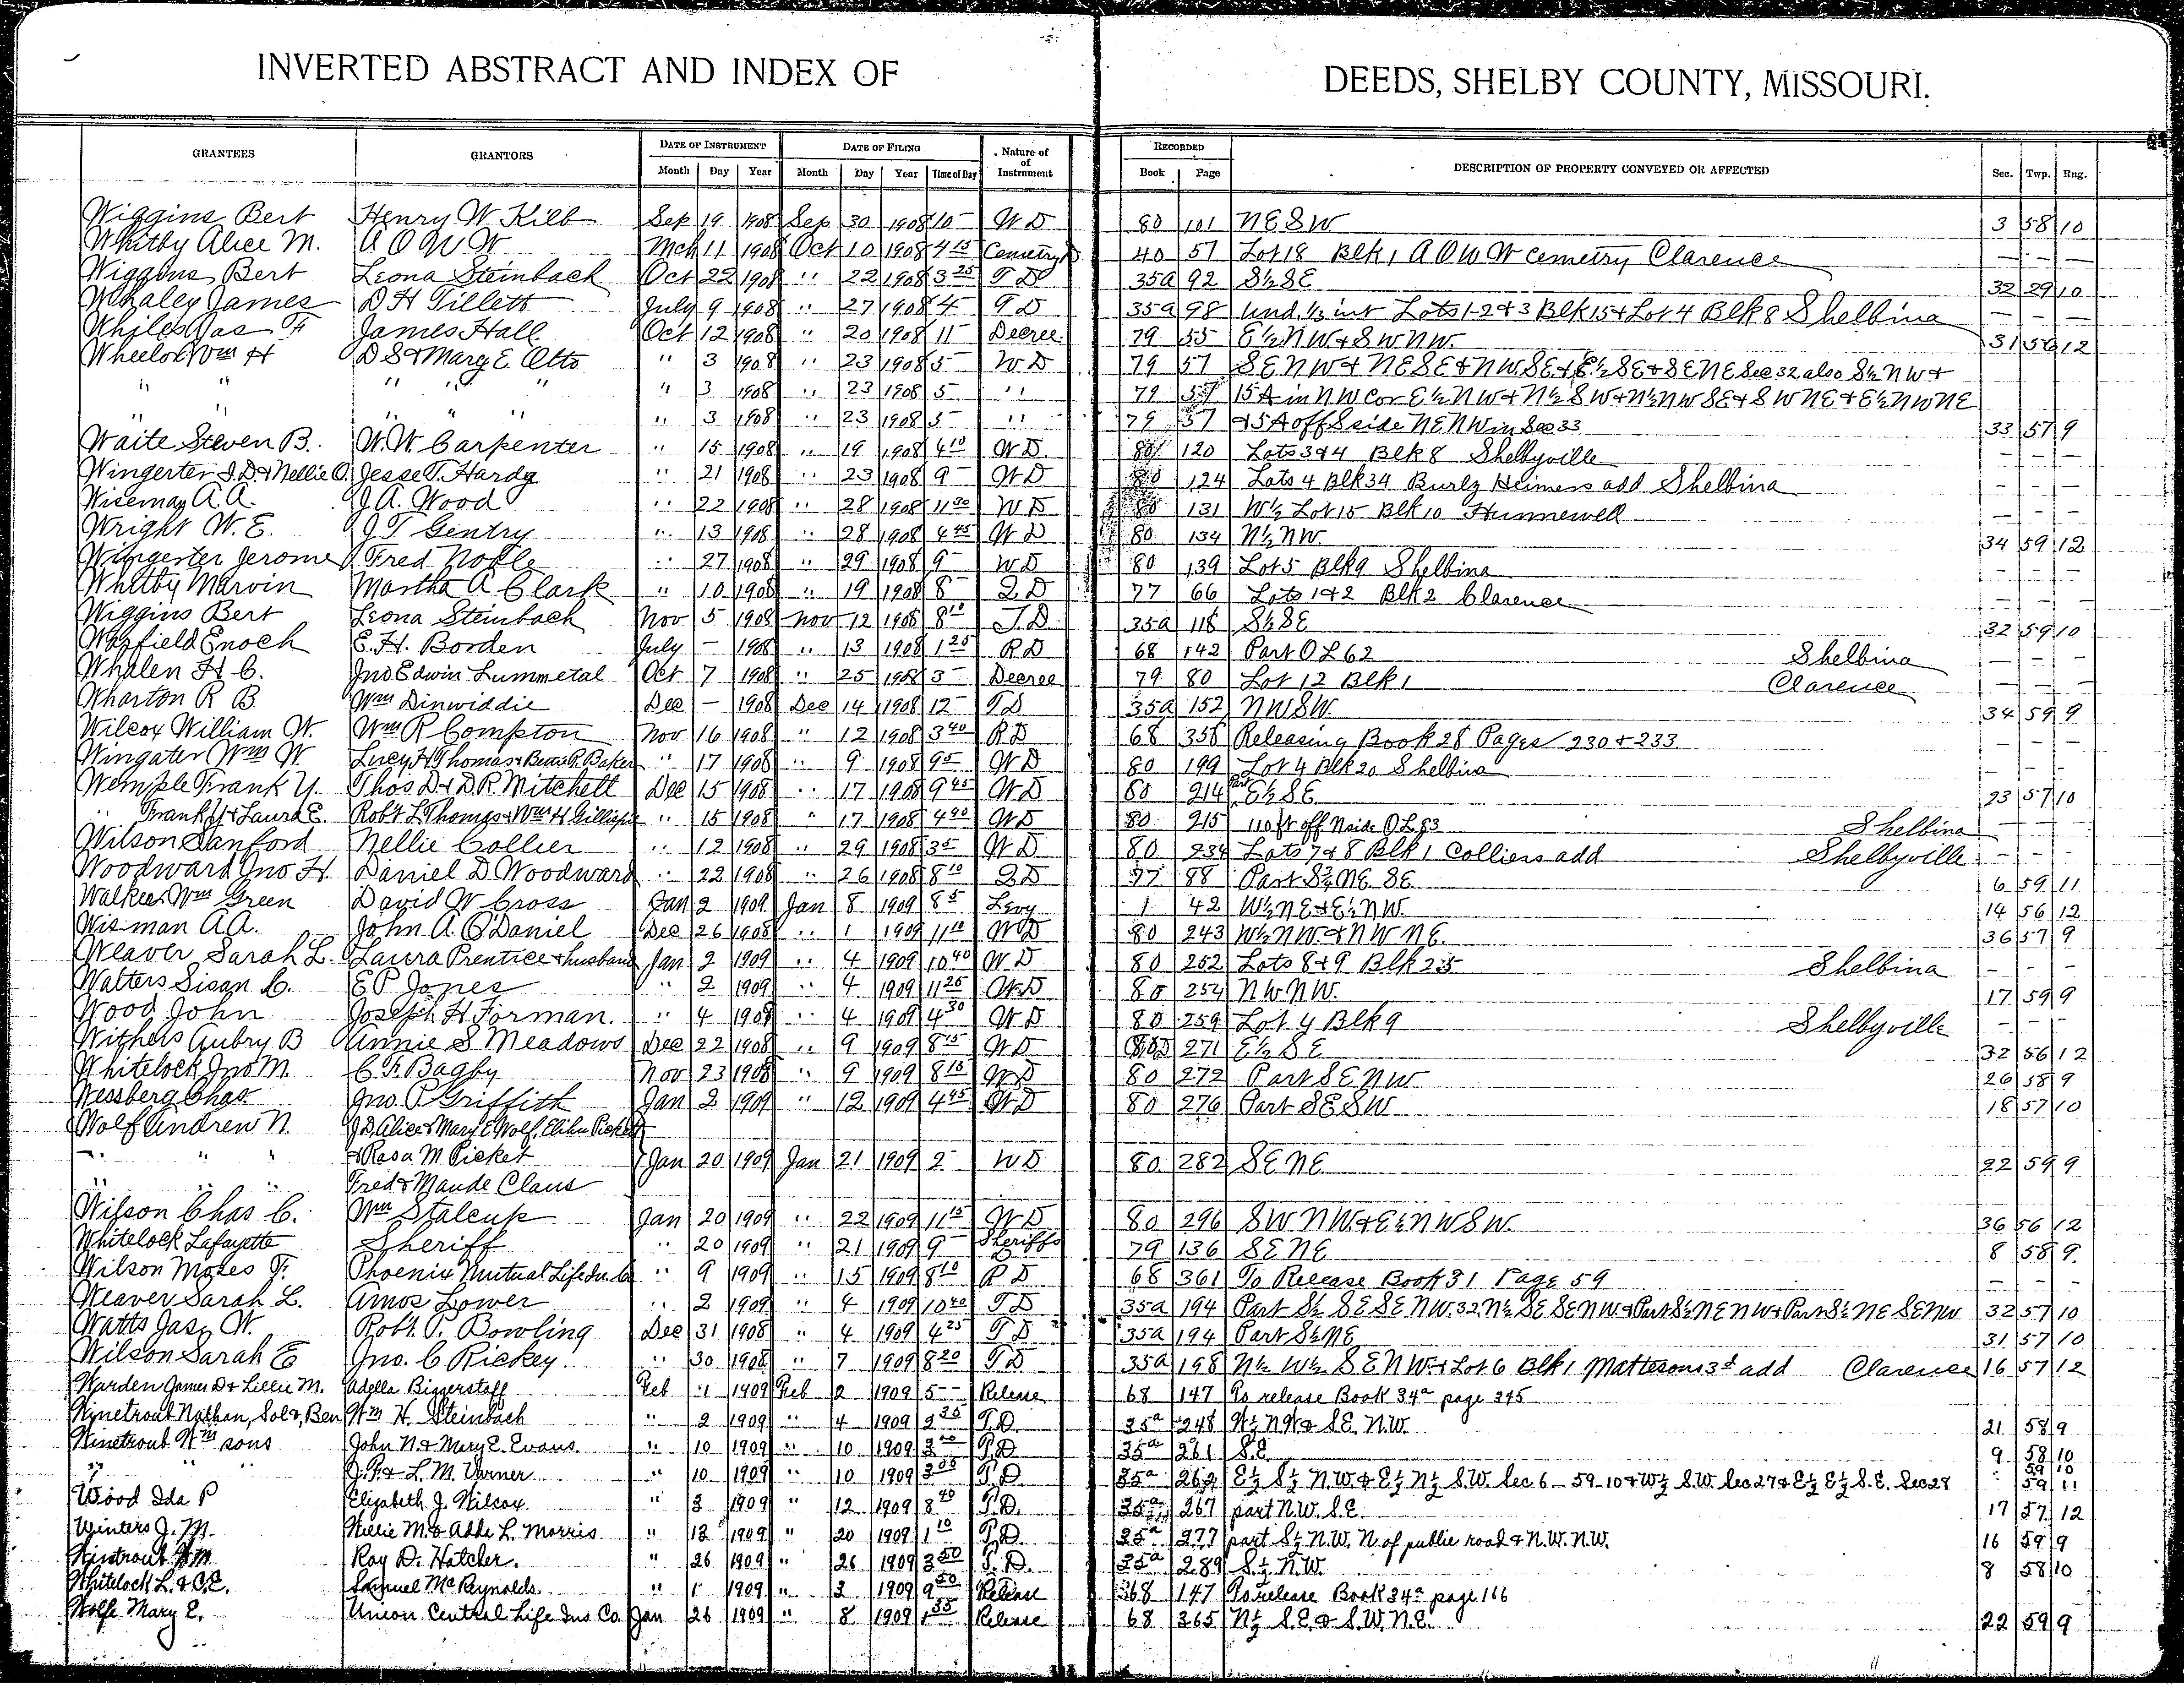 INVERTED ABSTRACT AND INDEX OF DEEDS, SHELBY COUNTY, MISSOURI.
GRANTEES GRANTORS DATE OF INSTRUMENT DATE OF FILING Nature of of Instrument RECORDED DESCRIPTION OF PROPERTY CONVEYED OR AFFECTED Sec. Twp. Rng.
Month Day Year Month Day Year Time of Day Book Page
Wiggins Bert Henry W Kilb Sep 19 1908 Sep 30 1908 10 - W D 80 101 NE SW 3 58 10
Whitby Alice M. A O U W Mch 11 1908 Oct 10 1908 4 15 Cemetry D 40 57 Lot 18 Blk 1 A O U W cemetry Clarence - - -
Wiggins Bert Leona Steinbach Oct 22 1908 " 22 1908 3 25 T D 35a 92 S½ SE 32 29 10
Whaley James D H Tillett July 9 1908 " 27 1908 4 - T D 35a 98 Und ⅓ int Lots 1-2 & 3 Blk 15 & Lot 4 Blk 8 Shelbina - - -
Whiles Jas F James Hall Oct 12 1908 " 20 1908 11 - Decree 79 55 E½ NW & SW NW. 31 56 12
Wheelock Wm H D S & Mary E Otto " 3 1908 " 23 1908 5 - W D 79 57 SE NW & NE SE & NW SE & E½ SE & SE NE Sec 32 also S½ NW &
" " " " " " 3 1908 " 23 1908 5 - " 79 57 15 A in NW cor E½ NW & N½ SW & N½ NW SE & SW NE & E½ NW NE
" " " " " " 3 1908 " 23 1908 5 - " 79 57 & 5 A off S side NE NW in Sec 33 33 57 9
Waite Steven B. W. W. Carpenter " 15 1908 " 19 1908 4 10 W D 80 120 Lots 3 & 4 Blk 8 Shelbyville - - -
Wingerter J. D. & Nellie O. Jesse T. Hardy " 21 1908 " 23 1908 9 - W D 80 124 Lots 4 Blk 34 Burly Heimers add Shelbina - - -
Wiseman A. A. J. A. Wood " 22 1908 " 28 1908 11 30 W D 80 131 W½ Lot 15 Blk 10 Hunnewell - - -
Wright W. E. J T Gentry " 13 1908 " 28 1908 4 45 W D 80 134 N½ NW 34 59 12
Wingerter Jerome J Fred Noble " 27 1908 " 29 1908 9 - W D 80 139 Lot 5 Blk 9 Shelbina - - -
Whitby Marvin Martha A Clark " 10 1908 " 19 1908 8 - Q D 77 66 Lots 1 & 2 Blk 2 Clarence - - -
Wiggins Bert Leona Steinbach Nov 5 1908 Nov 12 1908 8 10 T. D. 35a 116 S½ SE 32 59 10
Warfield Enoch E. H. Borden July - 1908 " 13 1908 1 25 R D 68 142 Part O L 62 Shelbina - - -
Whalen H C. Jno Edwin Lummetal Oct 7 1908 " 25 1908 3 - Decree 79 80 Lot 12 Blk 1 Clarence - - -
Wharton R B Wm Dinwiddie Dec - 1908 Dec 14 1908 12 - T D 35a 152 NW SW. 34 59 9
Wilcox William W. Wm R Compton Nov 16 1908 " 12 1908 3 40 R D 68 356 Releasing Book 28 Pages 230 & 233 - - -
Wingater Wm W. Lucy H Thomas & Baker " 17 1908 " 9 1908 9 05 W D 80 199 Lot 4 Blk 20 Shelbina - - -
Wemple Frank Y. Thos D & D R Mitchell Dec 15 1908 " 17 1908 9 45 W D 80 214 Part E½ SE 23 57 10
" Frank Y & Laura E. Robt L Thomas & Wm H Gillispie " 15 1908 " 17 1908 4 40 W D 80 215 110 ft off N side O L 83 Shelbina - - -
Wilson Sanford Nellie Collier " 12 1908 " 29 1908 3 - W D 80 234 Lots 7 & 8 Blk 1 Colliers add Shelbyville - - -
Woodward Jno H. Daniel D Woodward " 22 1908 " 26 1908 8 10 Q D 77 88 Part S½ NE SE 6 59 11
Walker Wm Green David W Cross Jan 2 1909 Jan 8 1909 8 5 Levy 1 42 W½ NE & E½ NW. 14 56 12
Wisman A A. John A. O'Daniel Dec 26 1908 " 1 1909 11 10 W D 80 243 W½ NW. & NW NE. 36 57 9
Weaver Sarah L. Laura Prentice & husband Jan 2 1909 " 4 1909 10 40 W D 80 252 Lots 8 & 9 Blk 25 Shelbina - - -
Walters Susan C. E P Jones " 2 1909 " 4 1909 11 25 W D 80 254 NW NW. 17 59 9
Wood John Joseph H Forman. " 4 1909 " 4 1909 4 30 W D 80 259 Lot 4 Blk 9 Shelbyville - - -
Withers Aubry B Annie S Meadows Dec 22 1908 " 9 1909 8 15 W D 80 271 E½ SE 32 56 12
Whitelock Jno M. C. F. Bagby Nov 23 1908 " 9 1909 8 10 W D 80 272 Part SE NW 26 58 9
Wessberg Chas Jno. P Griffith Jan 2 1909 " 12 1909 4 45 W D 80 276 Part SE SW 18 57 10
Wolf Andrew N. J D Alice & Mary E Wolf, Elihu Picket
" " " & Rosa M Picket Jan 20 1909 Jan 21 1909 2 - W D 80 282 SE NE 22 59 9
" " " Fred & Maude Claus
Wilson Chas C. Wm Stalcup Jan 20 1909 " 22 1909 11 15 W D 80 296 SW NW & E½ NW SW. 36 56 12
Whitelock Lafayette Sheriff " 20 1909 " 21 1909 9 - Sheriffs D 79 136 SE NE 8 58 9.
Wilson Moses F. Phoenix Mutual Life In. Co " 9 1909 " 15 1909 8 10 R D 68 361 To Release Book 31 Page 59 - - -
Weaver Sarah L. Amos Lower " 2 1909 " 4 1909 10 40 T D 35a 194 Part S½ SE SE NW. 32 N½ SE SE NW. & Part S½ NE NW & Part S½ NE SE NW 32 57 10
Watts Jas. W. Robt. P. Bowling Dec 31 1908 " 4 1909 4 25 T D 35a 194 Part S½ NE 31 57 10
Wilson Sarah E Jno. C Rickey " 30 1908 " 7 1909 8 20 T D 35a 198 N½ W½ SE NW. & Lot 6 Blk 1 Mattesons 3d add Clarence 16 57 12
Warden James D & Lillie M. Adella Biggerstaff Feb 1 1909 Feb 2 1909 5 - Release 68 147 To release Book 34a page 345
Winetrout Nathan, Sol &, Ben Wm H. Steinbach " 2 1909 " 4 1909 2 35 T. D. 35a 248 W½ NW & SE. N.W. 21 58 9
Winetrout Wm sons John N. & Mary E. Evans. " 10 1909 " 10 1909 3 T. D. 35a 261 S.E. 9 58 10
" " J. P. & L. M. Varner " 10 1909 " 10 1909 3 05 T. D. 35a 262 E½ S½ N.W. & E½ N½ S.W. Sec 6 - 59-10 & W½ S.W. Sec 27 & E½ E½ S.E. Sec 28 59 10 59 11
Wood Ida P Elizabeth J. Wilcox. " 3 1909 " 12 1909 8 40 T. D. 35a 267 part N.W. S.E. 17 57 12
Winters J. M. Willie M. & Adda L. Morris " 13 1909 " 20 1909 1 10 T. D. 35a 277 part S½ N.W. N of public road & N.W. N.W. 16 59 9
Winetrout Wm Roy D. Hatcher. " 26 1909 " 26 1909 3 50 T. D. 35a 289 S½ N.W. 8 58 10
Whitelock L. & C.E. Samuel McReynolds. " 1 1909 " 3 1909 9 50 Release 68 147 To release Book 34a page 166
Wolfe Mary E. Union Central Life Ins. Co. Jan 26 1909 " 8 1909 1 35 Release 68 365 N½ S.E. & S.W. N.E. 22 59 9